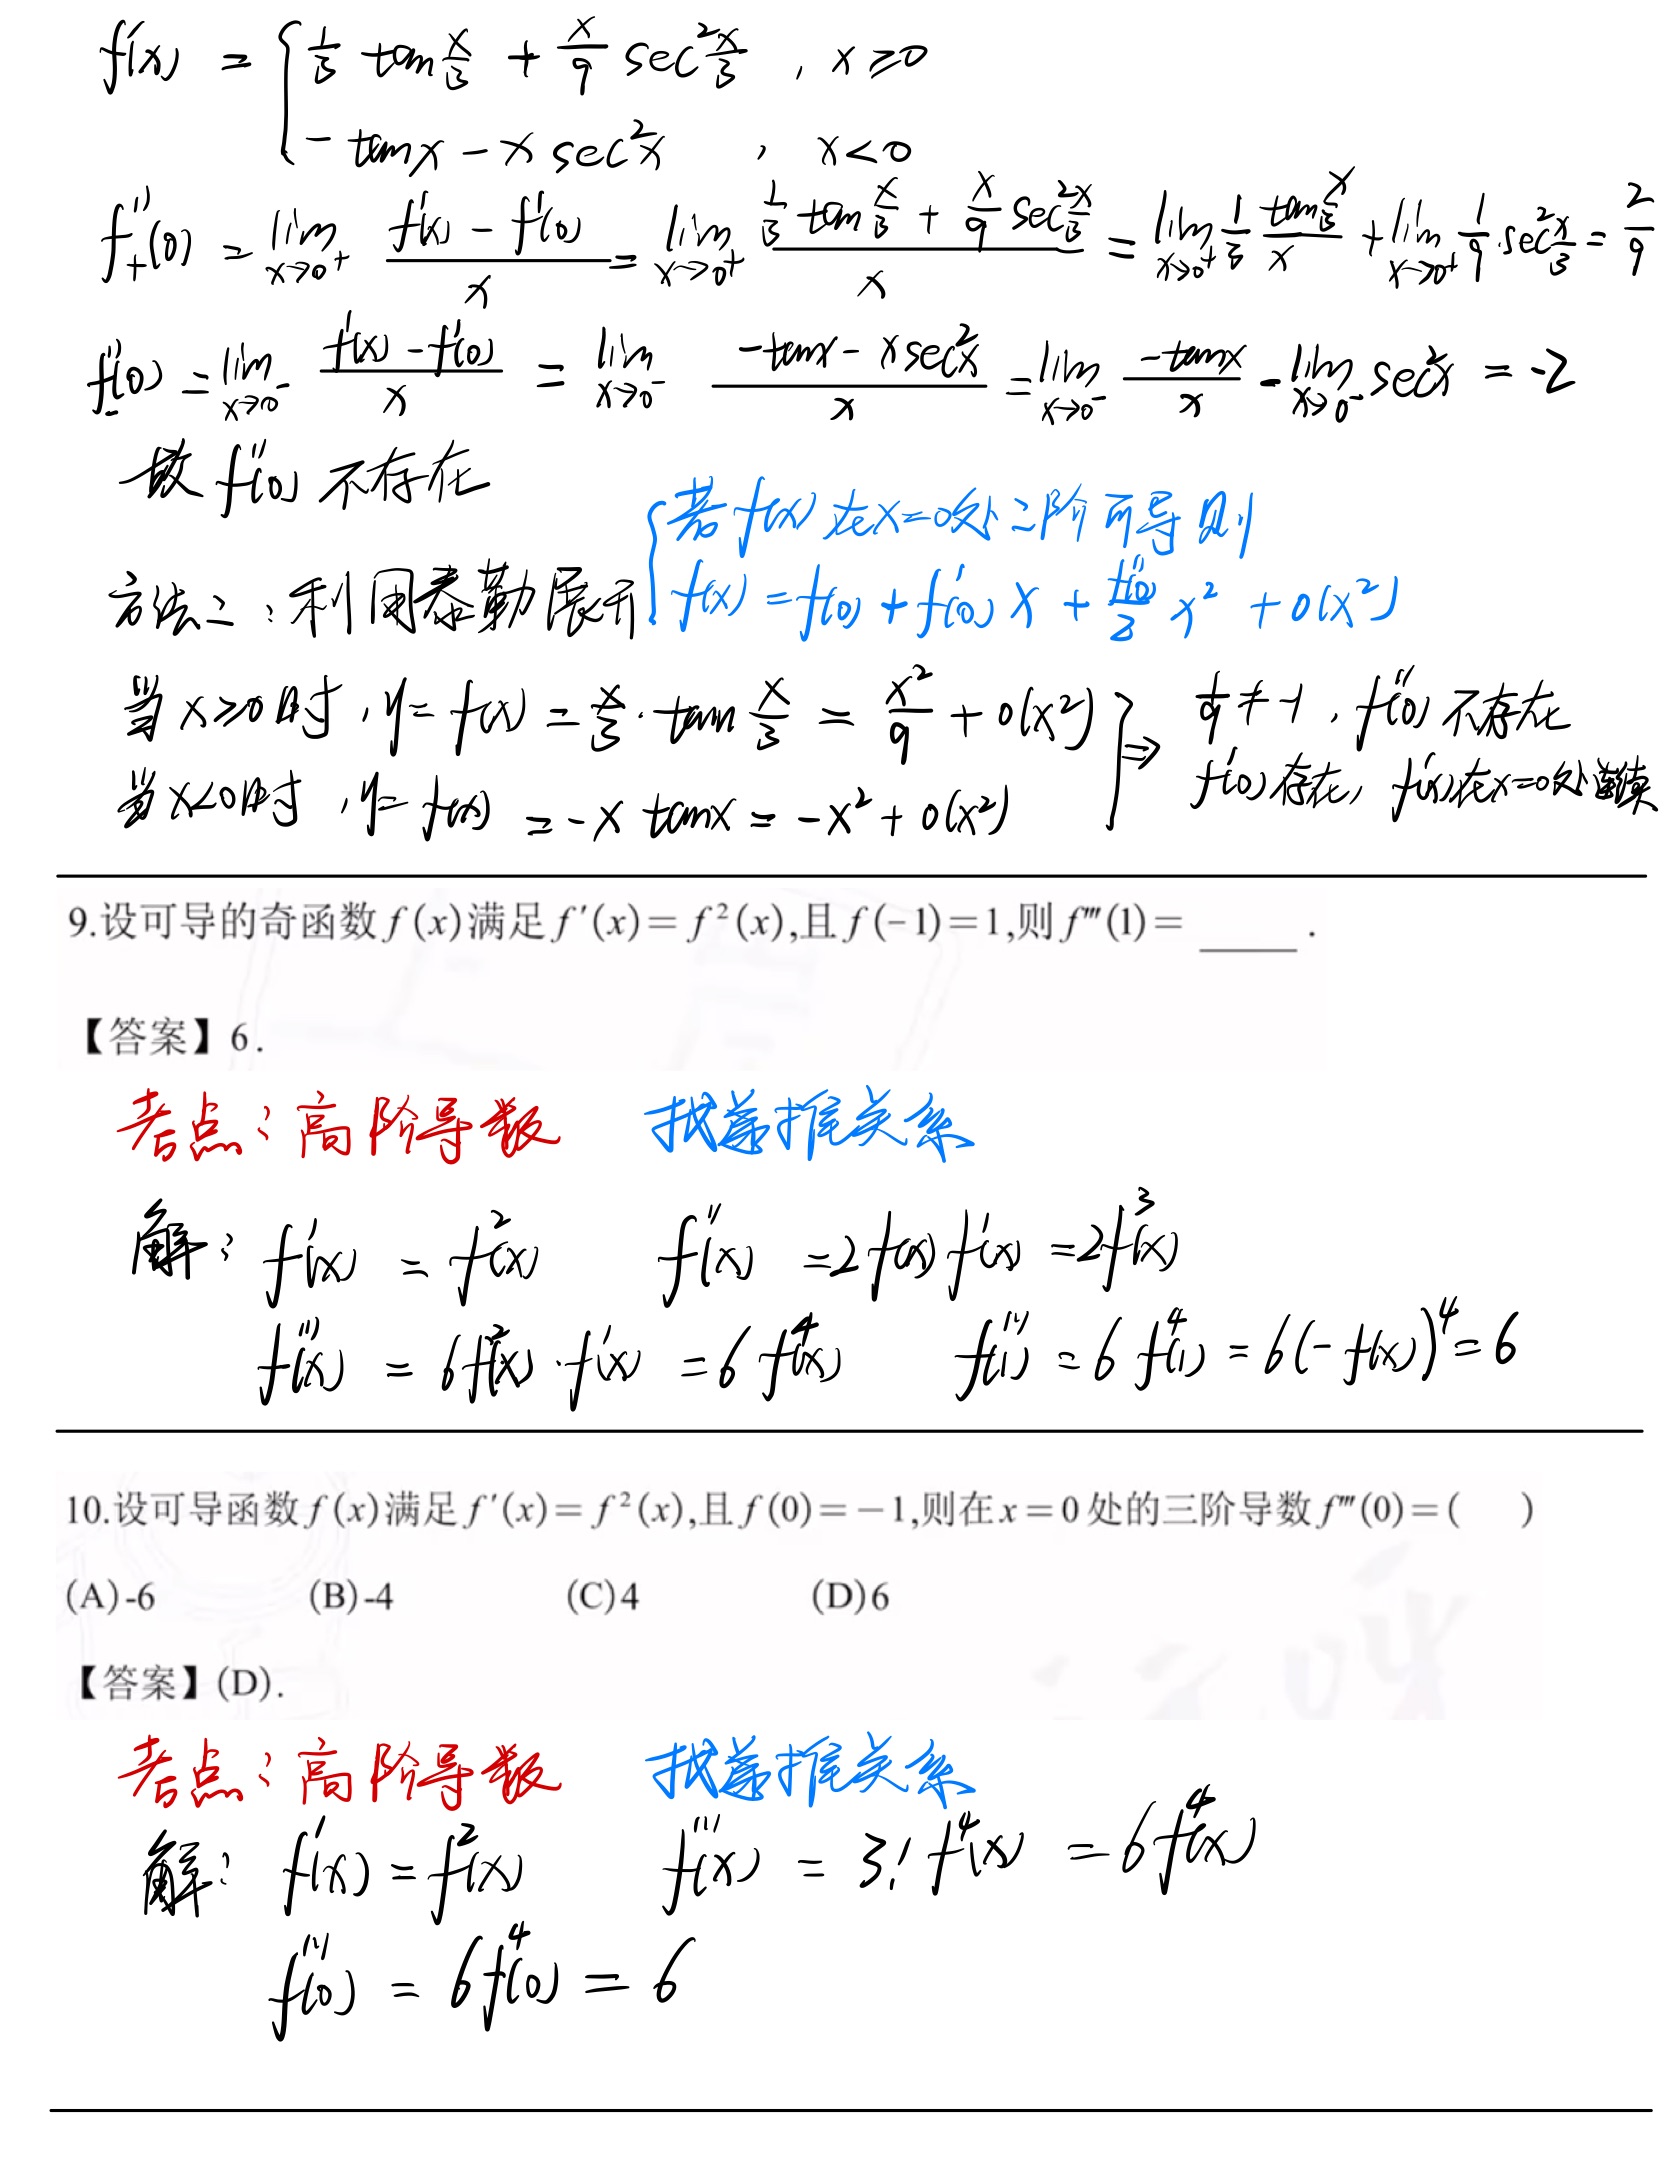 f'(x) = { 1/3 tan x/3 + x/9 sec² x/3 , x≥0
- tanx - x sec²x , x<0
f''₊(0) = lim x→0⁺ (f'(x) - f'(0))/x = lim x→0⁺ (1/3 tan x/3 + x/9 sec² x/3)/x = lim x→0⁺ 1/3 (tan x/3)/x + lim x→0⁺ 1/9 · sec² x/3 = 2/9
f''₋(0) = lim x→0⁻ (f'(x) - f'(0))/x = lim x→0⁻ (-tanx - x sec²x)/x = lim x→0⁻ (-tanx)/x - lim x→0⁻ sec²x = -2
故 f''(0) 不存在
方法二：利用泰勒展开 { 若 f(x) 在x=0处二阶可导则
f(x) = f(0) + f'(0) x + f''(0)/2 x² + o(x²)
当 x≥0时, y = f(x) = x/3 · tan x/3 = x²/9 + o(x²)
当 x<0时, y = f(x) = -x tanx = -x² + o(x²) } ⇒ 1/9 ≠ -1, f''(0) 不存在
f'(0) 存在, f'(x)在x=0处连续
9.设可导的奇函数 f(x)满足 f′(x)= f²(x),且 f(−1)=1,则 f‴(1)= ____ .
【答案】6.
考点：高阶导数 找递推关系
解：f'(x) = f²(x) f''(x) = 2f(x) f'(x) = 2f³(x)
f'''(x) = 6f²(x)·f'(x) = 6 f⁴(x) f'''(1) = 6 f⁴(1) = 6(-f(x))⁴ = 6
10.设可导函数 f(x)满足 f′(x)= f²(x),且 f(0)=−1,则在 x=0 处的三阶导数 f‴(0)=( )
(A)-6 (B)-4 (C)4 (D)6
【答案】(D).
考点：高阶导数 找递推关系
解：f'(x) = f²(x) f'''(x) = 3! f⁴(x) = 6f⁴(x)
f'''(0) = 6f⁴(0) = 6